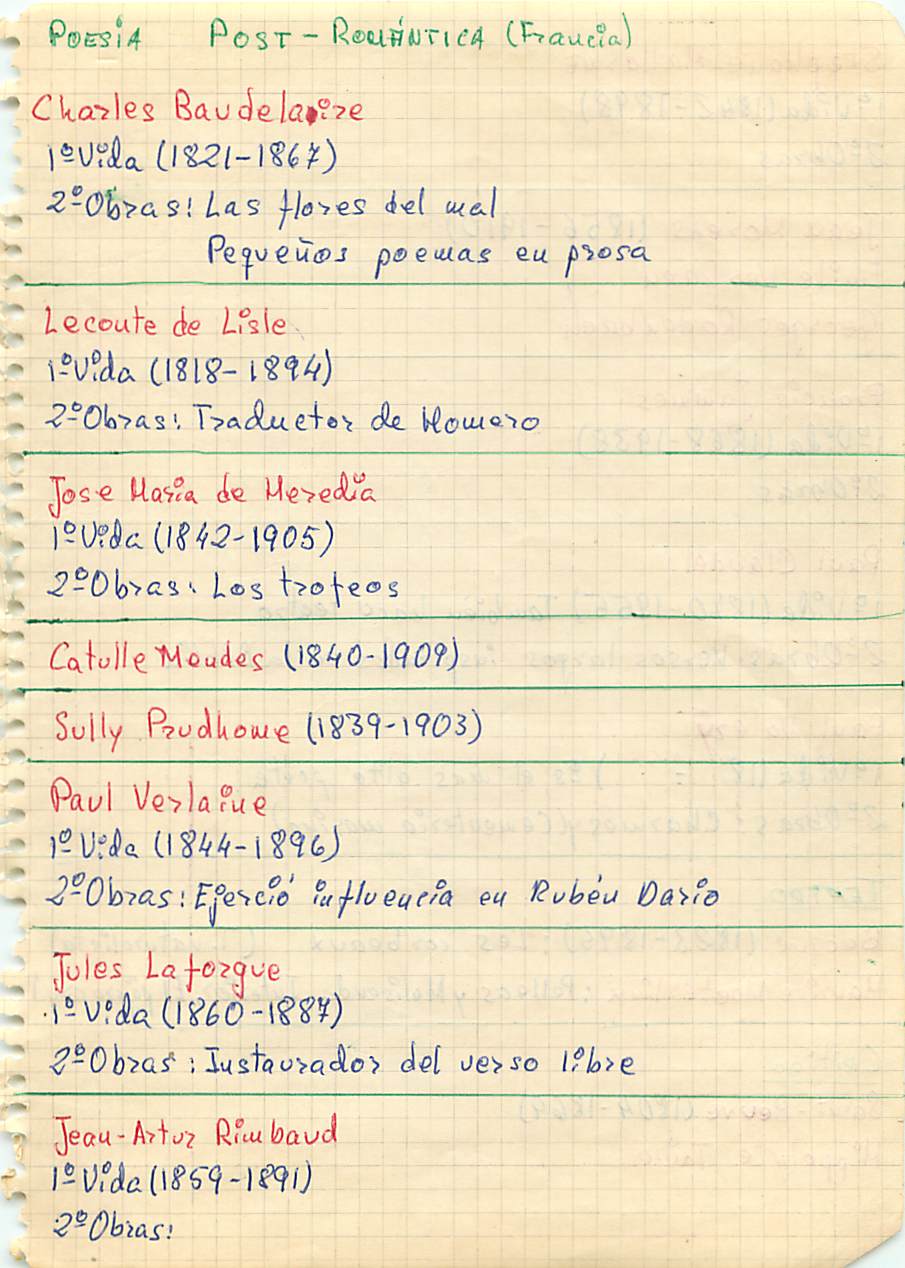 POESÍA POST-ROMÁNTICA (Francia)
Charles Baudelaire
1º Vida (1821-1867)
2º Obras: Las flores del mal
Pequeños poemas en prosa
Leconte de Lisle
1º Vida (1818-1894)
2º Obras: Traductor de Homero
Jose María de Heredia
1º Vida (1842-1905)
2º Obras: Los trofeos
Catulle Mendes (1840-1909)
Sully Prudhome (1839-1903)
Paul Verlaine
1º Vida (1844-1896)
2º Obras: Ejerció influencia en Rubén Dario
Jules Laforgue
1º Vida (1860-1887)
2º Obras: Instaurador del verso libre
Jean-Artur Rimbaud
1º Vida (1859-1891)
2º Obras: